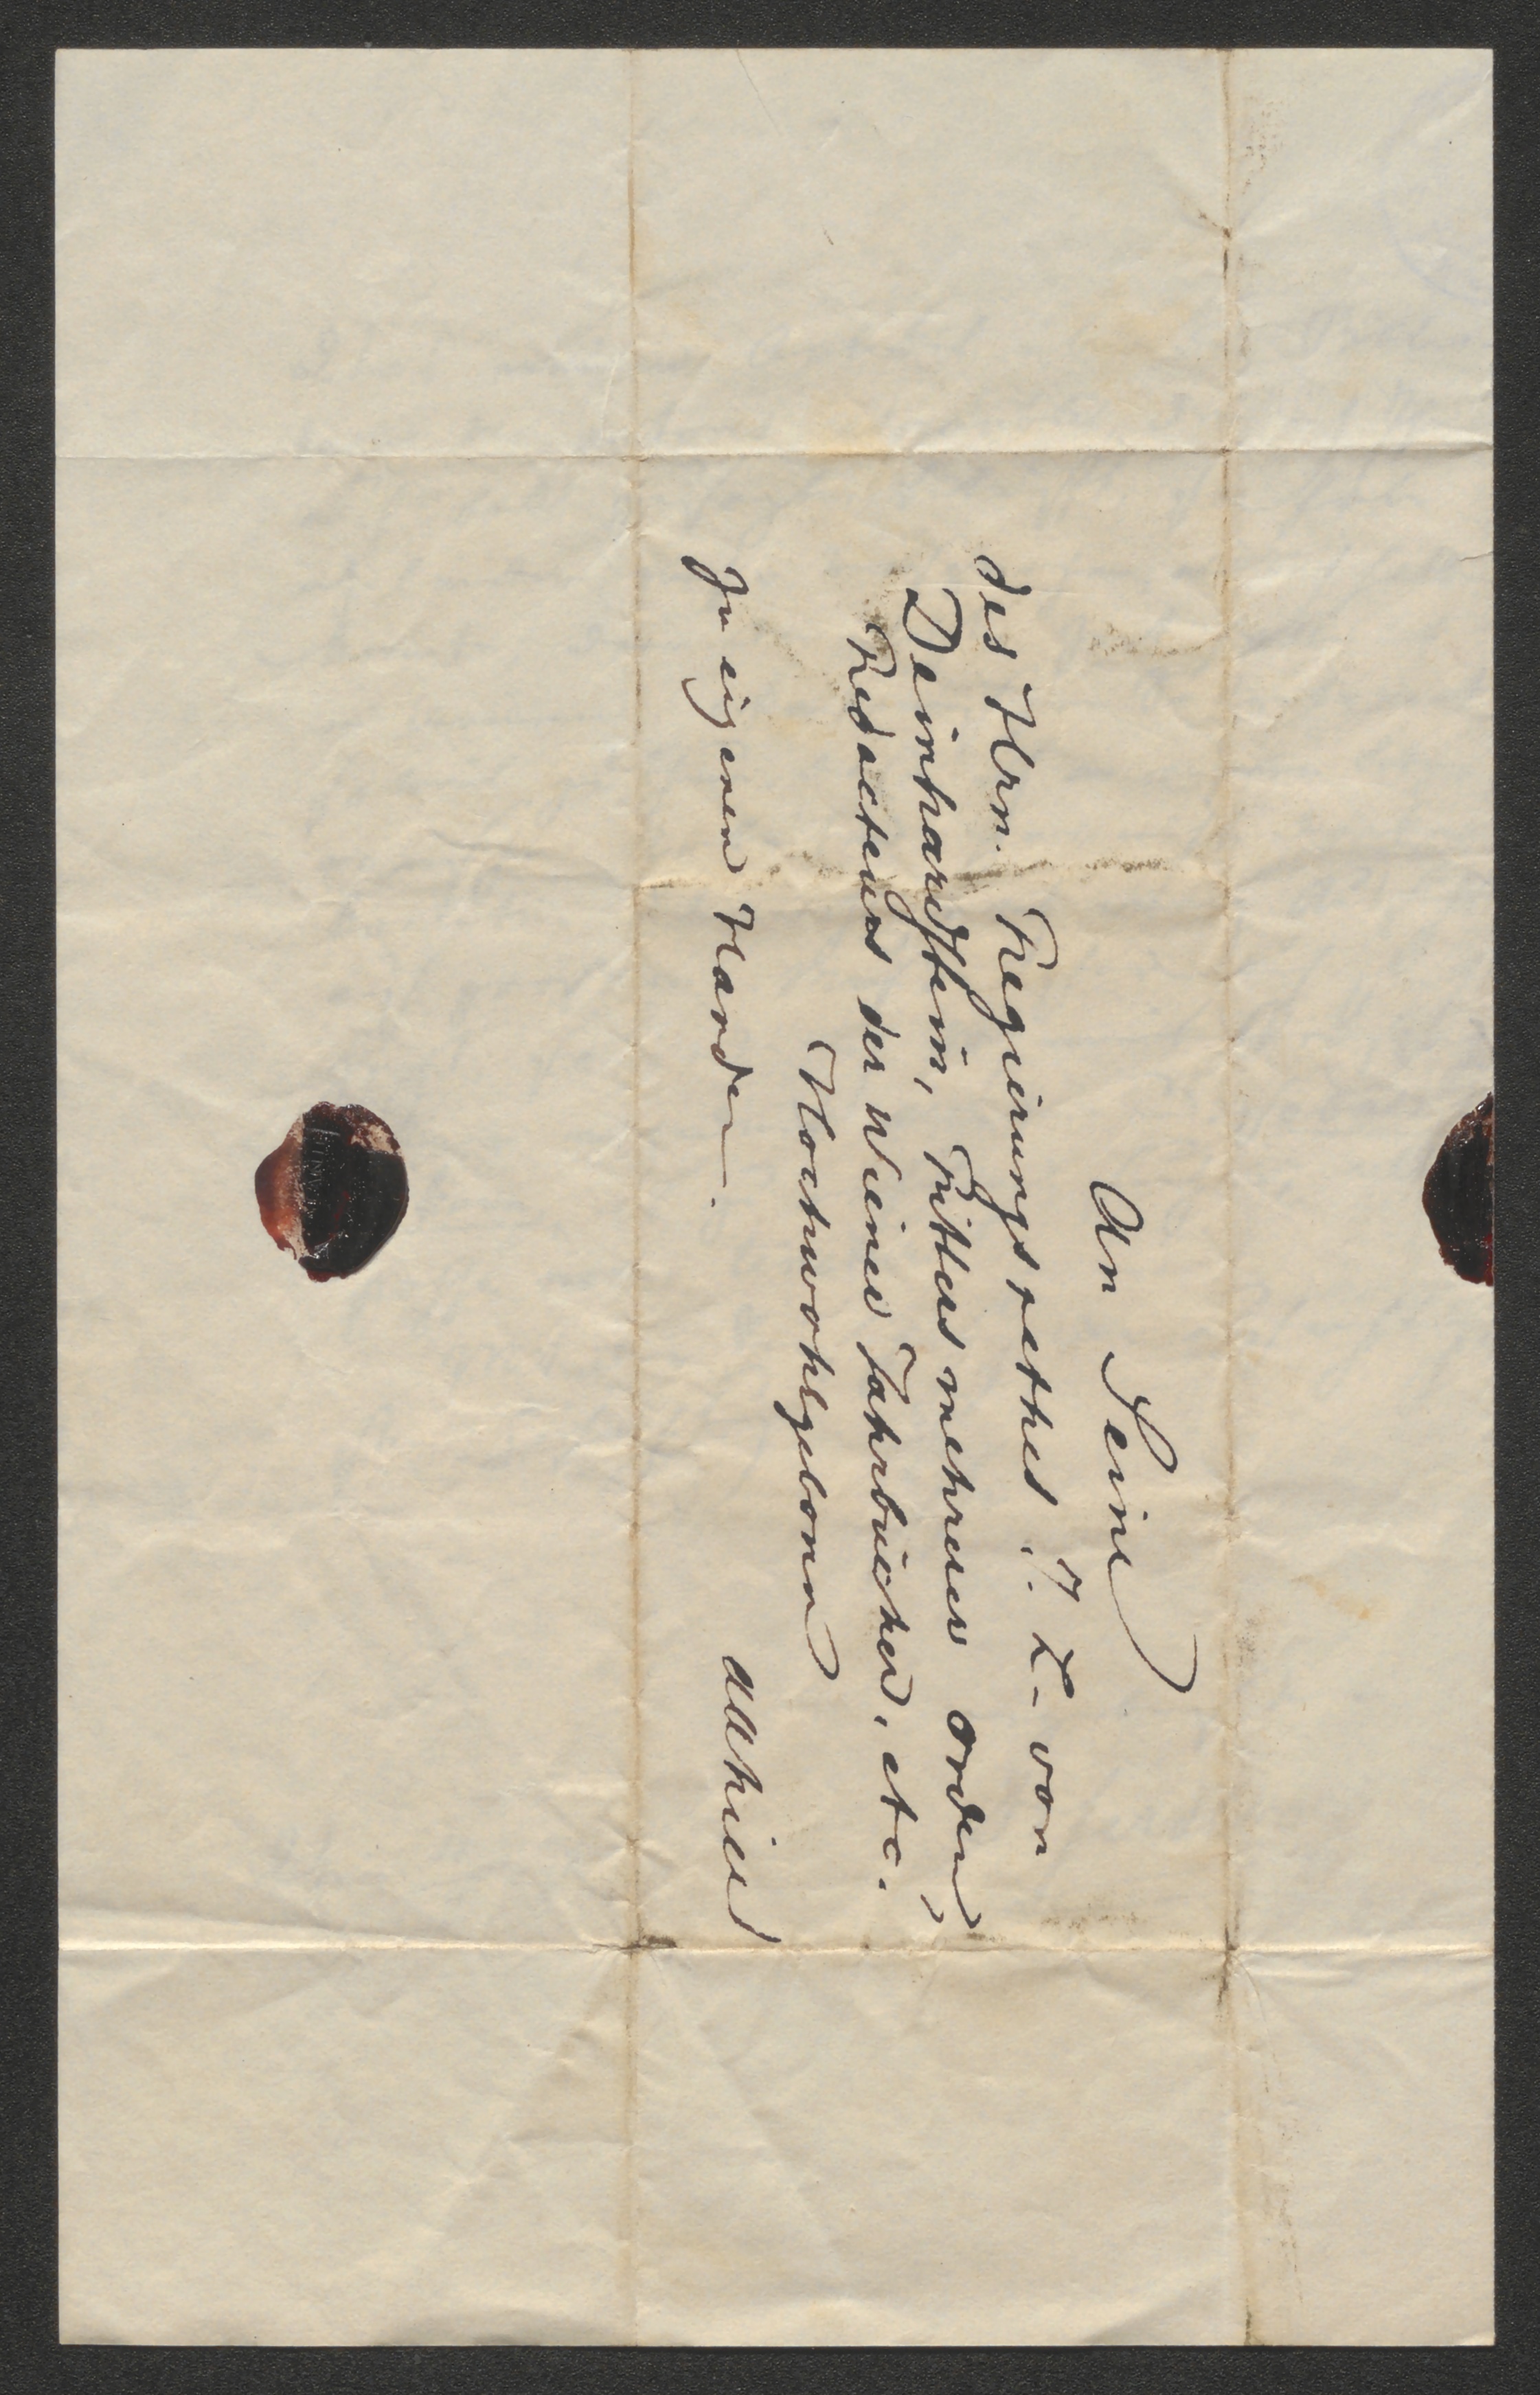 An Seine
des Hrn. Regierungsrathes J. L. von
Deinhardstein, Ritters mehrerer Orden,
Redacteurs der Wiener Jahrbücher, etc.
Hochwohlgeboren
Zu eigenen Handen.
allhier